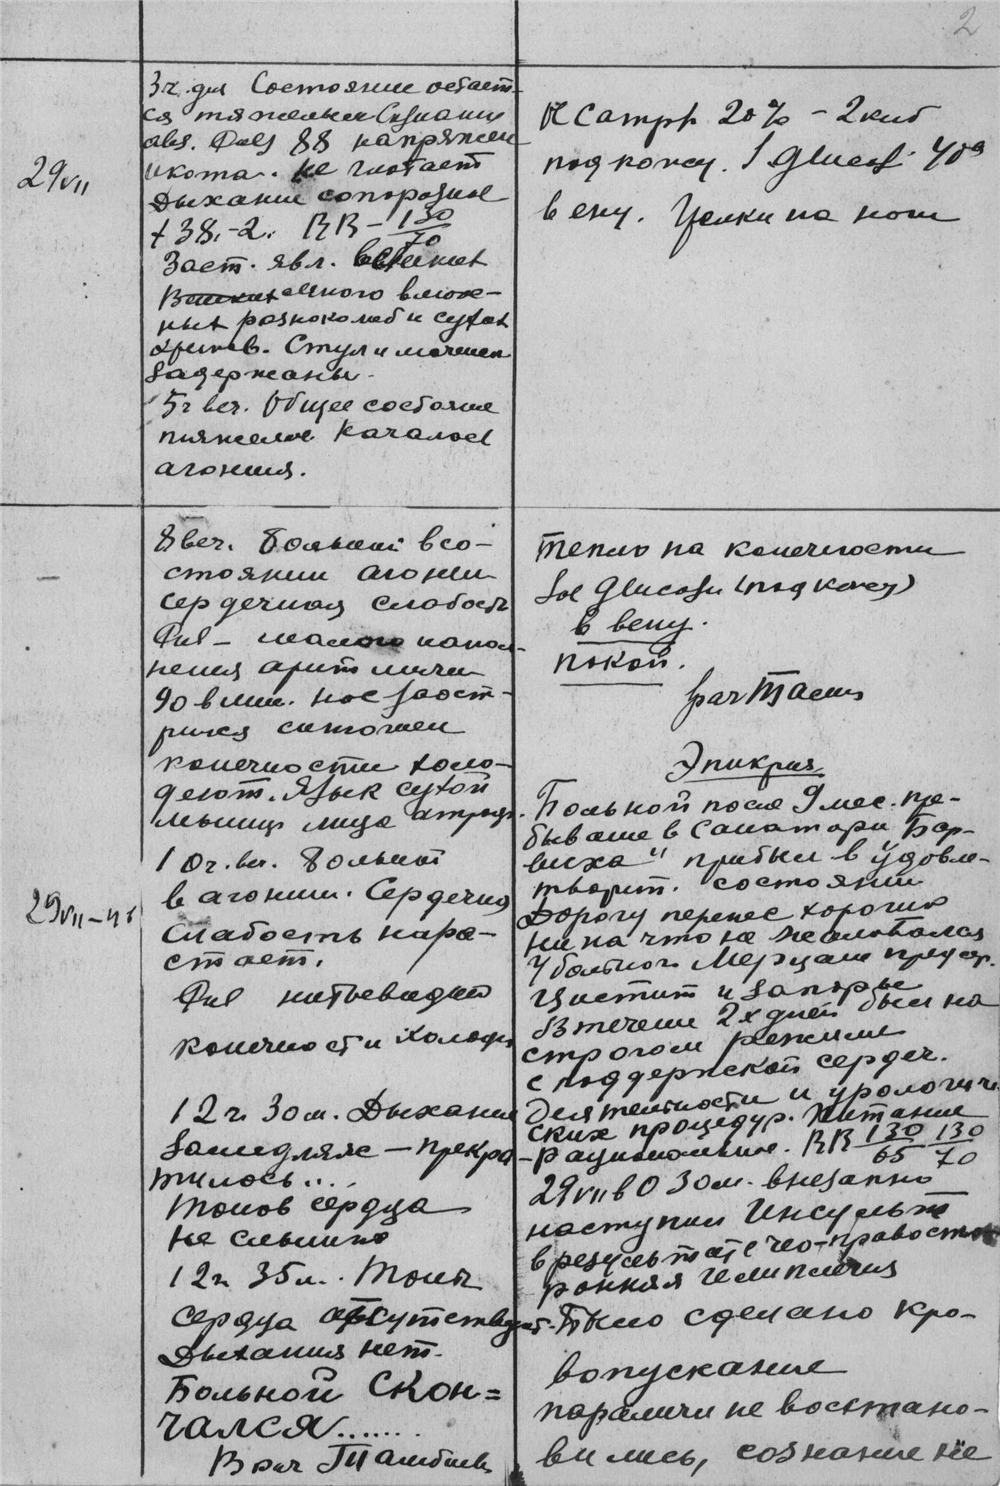 2
29 VII
3 ч. дня Состояние остает-
ся тяжелым Сознание
Puls 88 напряжен
икота. Не глотает
Дыхание сопорозное
t 38,-2. RR – 130/70
Заст. явл.
влаж-
ных разнокалиб и сухих
хрипов. Стул и мочеисп
задержаны.
5 ч веч. Общее состояние
тяжелое Началась
агония.
Camph 20% – 2 куб
под кожу. Glucos. 40%
в вену. Грелки на ноги
29 VII – 41
8 веч. Больной в со-
стоянии агонии
Сердечная слабость
Puls – малого напол-
нения аритмичен
90 в мин. Нос заост-
рился
конечности холо-
деют. Язык сухой
мышцы лица атроф.
10 ч. вч. Больной
в агонии. Сердечная
слабость нара-
стает.
Puls нитевидный
конечности холодн
12 ч. 30 м. Дыхание
замедляяс – прекра-
тилось...
Тонов сердца
не слышно
12 ч 35 м. Тоны
сердца отсутствуют.
Дыхания нет.
Больной скон=
чался.......
Врач
Тепло на конечности
Sol Glucosu (под кожу)
в вену.
покой.
врач
Эпикриз
Больной после 9 мес. пре-
бывание в санатори "Бар-
виха" прибыл в удовле-
творит. состоянии
Дорогу перенес хорошо
ни на что не жаловался
У больного Мерцание предсер.
Цистит и запоры
В течение 2х дней был на
строгом режиме
с поддержкой сердеч.
деятельности и урологиче
ских процедур. Питание
рациональное. RR 130/65 130/70
29 VII в 0 30 м. внезапно
наступил Инсульт
в результате чего – правосто
ронняя гемиплегия
Было сделано кро-
вопускание
параличи не восстано-
вились, сознание не